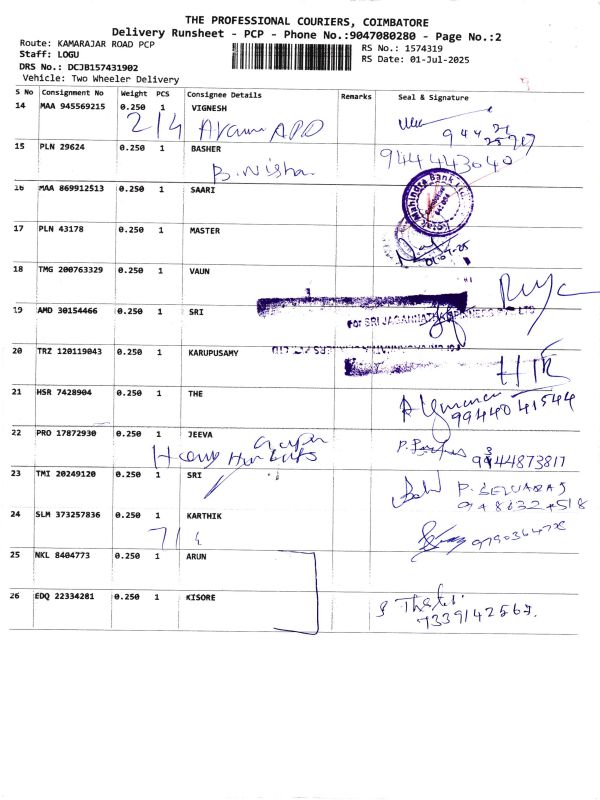 THE PROFESSIONAL COURIERS, COIMBATORE
Delivery Runsheet - PCP - Phone No.:9047080280 - Page No.:2
Route: KAMARAJAR ROAD PCP
Staff: LOGU
DRS No.: DCJB157431902
Vehicle: Two Wheeler Delivery
RS No.: 1574319
RS Date: 01-Jul-2025
S No Consignment No Weight PCS Consignee Details Remarks Seal & Signature
14 MAA 945569215 0.250 1 VIGNESH
2/4
15 PLN 29624 0.250 1 BASHER 9444443040
B. Nisha
16 MAA 869912513 0.250 1 SAARI
Mahindra Bank Ltd
17 PLN 43178 0.250 1 MASTER
01-07-25
18 TMG 200763329 0.250 1 VAUN
19 AMD 30154466 0.250 1 SRI
For SRI JAGANNATHA
20 TRZ 120119043 0.250 1 KARUPUSAMY
21 HSR 7428904 0.250 1 THE
9944041544
22 PRO 17872930 0.250 1 JEEVA
9944873817
23 TMI 20249120 0.250 1 SRI
P. SELVARAJ
24 SLM 373257836 0.250 1 KARTHIK
7/4
9790364728
25 NKL 8404773 0.250 1 ARUN
26 EDQ 22334281 0.250 1 KISORE
7339142567.